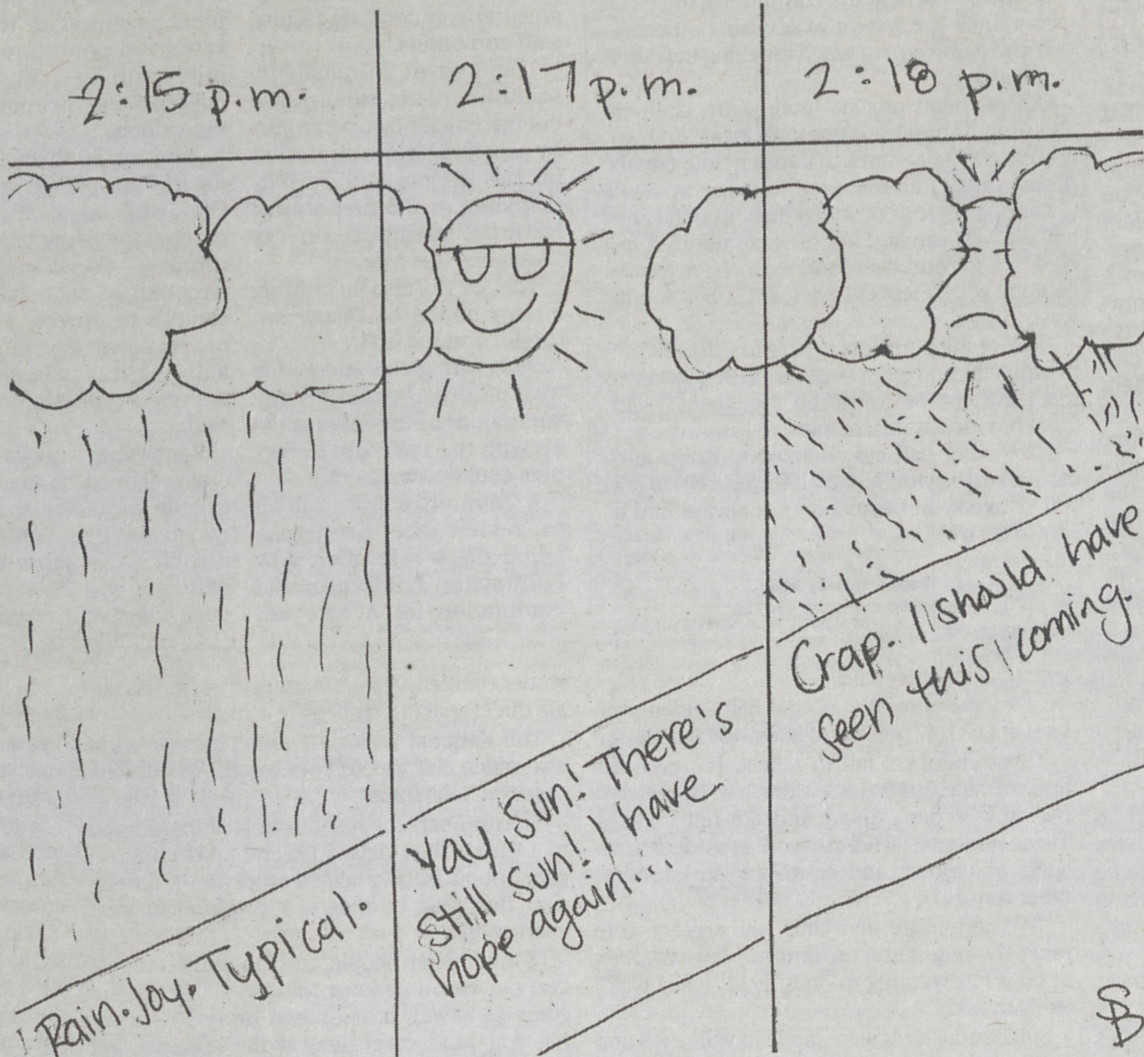 2:15 p.m.
2:17 p.m.
2:18 p.m.
Rain. Joy. Typical.
Yay, Sun! There's
still Sun! I have
hope again...
Crap. I should have
seen this coming.
SB